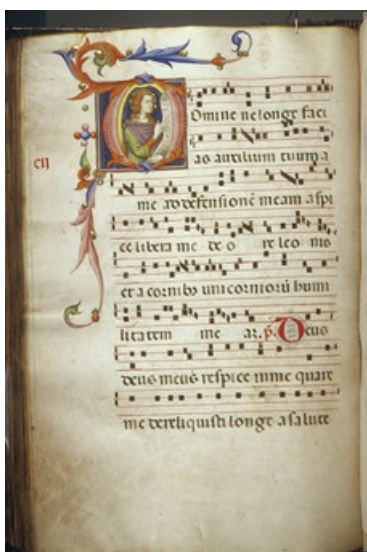 Domine ne longe faci
as auxilium tuum a
cij
me ad defensionē meam aspi
ce libera me de o re leo nis
et a cornibꝰ unicorniorū humi
litatem me am. p̄. Deus
deus meus respice in me quare
me dereliquisti longe a salute